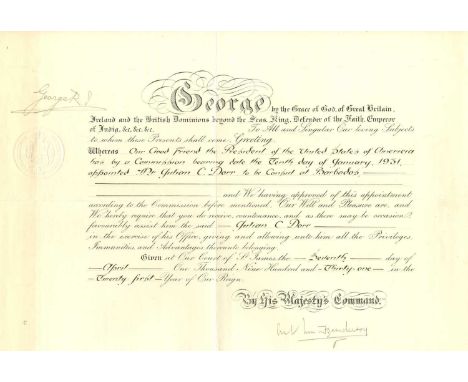 George R.I.
George by the Grace of God, of Great Britain,
Ireland and the British Dominions beyond the Seas, King, Defender of the Faith, Emperor
of India, &c. &c. &c. To All and Singular Our loving Subjects
to whom these Presents shall come, Greeting.
Whereas Our Good Friend the President of the United States of America
has by a Commission bearing date the Tenth day of January, 1931,
appointed Mr Julian C. Dorr to be Consul at Barbados,
and We having approved of this appointment
according to the Commission before mentioned. Our Will and Pleasure are, and
We hereby require that you do receive, countenance, and as there may be occasion
favourably assist him the said Julian C. Dorr
in the exercise of his Office, giving and allowing unto him all the Privileges,
Immunities, and Advantages thereunto belonging.
Given at Our Court of St James, the Seventh day of
April One Thousand Nine Hundred and Thirty one in the
Twenty first Year of Our Reign.
By His Majesty's Command.